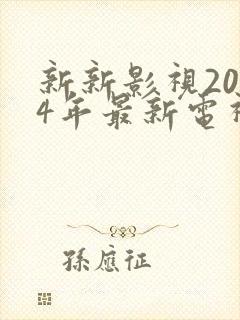 新新影視20
4年最新電視
孫應征